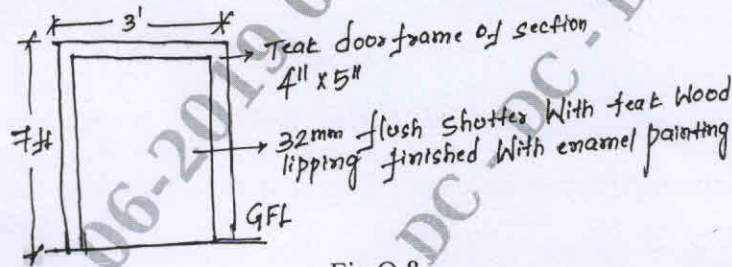 3'
Teak door frame of section
4" x 5"
7ft
32mm flush shutter With teak Wood
lipping finished With enamel painting
GFL
06-2019
DC - DC -
Fig Q.8